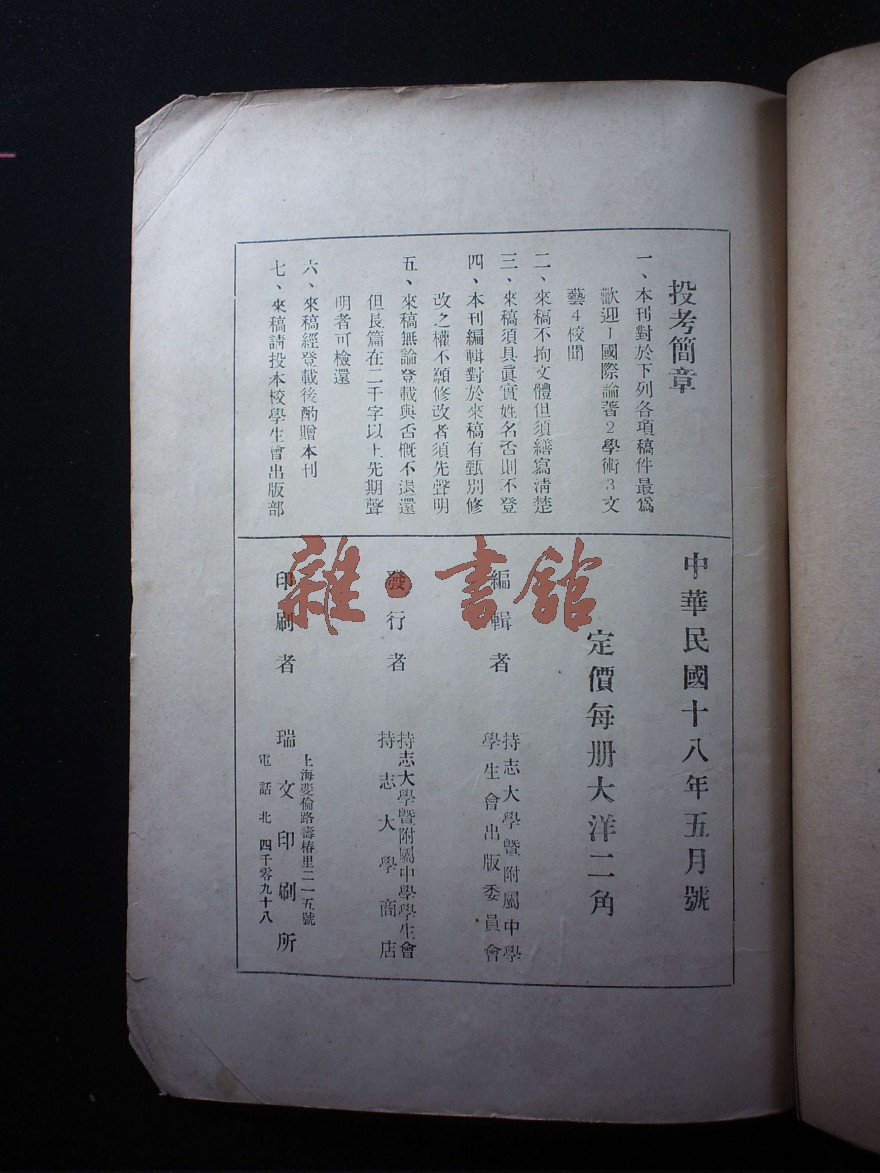 投考簡章
一、本刊對於下列各項稿件最爲
歡迎1國際論著2學術3文
藝4校聞
二、來稿不拘文體但須繕寫淸楚
三、來稿須具眞實姓名否則不登
四、本刊編輯對於來稿有甄別修
改之權不願修改者須先聲明
五、來稿無論登載與否概不退還
但長篇在二千字以上先期聲
明者可檢還
六、來稿經登載後酌贈本刊
七、來稿請投本校學生會出版部
中華民國十八年五月號
定價每册大洋二角
編輯者
持志大學曁附屬中學
學生會出版委員會
發行者
持志大學曁附屬中學學生會
持志大學商店
印刷者
上海斐倫路壽椿里二一五號
瑞文印刷所
電話北四千零九十八
雜·書館